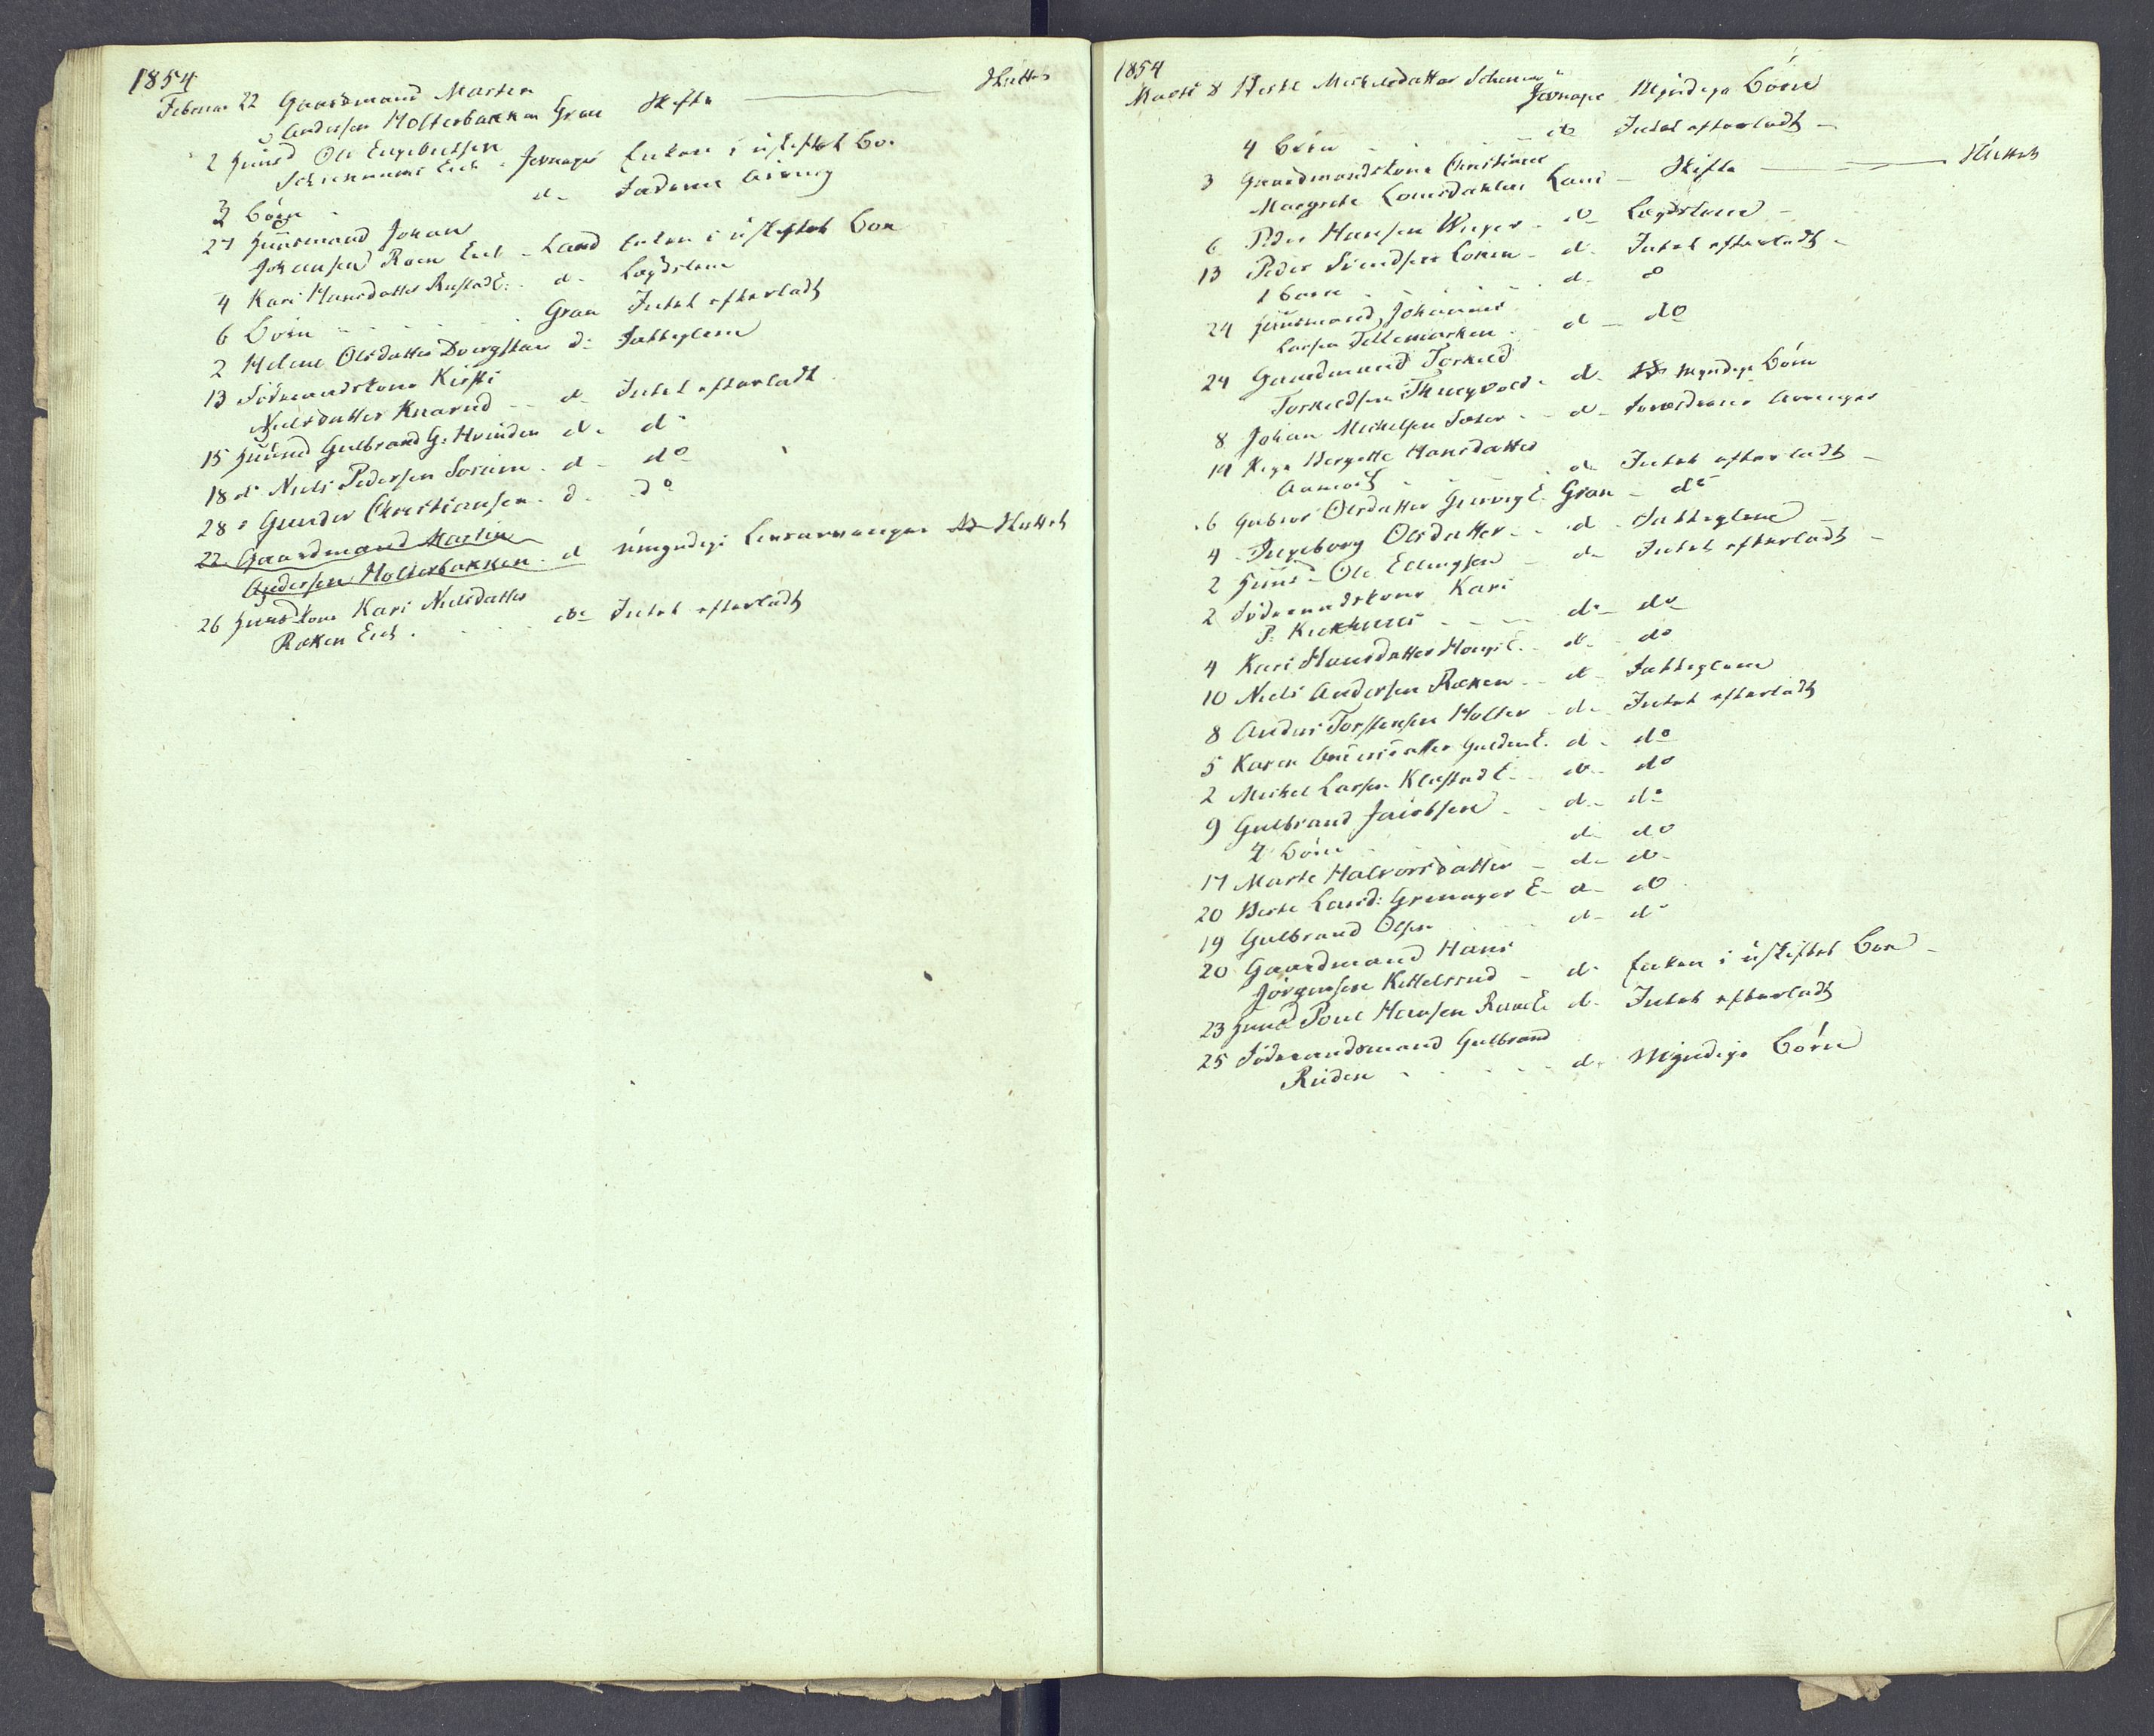 1854
Februar 22 Gaardmand Marten
Andersen Molterbakken Gran Skifte — Sluttet
2 Huusmd Ole Engebretsen
Schiennums Eie - Jevnager Enken i uskiftet Bo
3 Börn - d- Faderen Arving
27 Huusmand Johan
Johansen Roen Eie - Land Enken i uskiftet Boe
4 Kari Hansdatter Rustad E: - d- Lægdslem
6 Börn - Gran Intet efterladt
2 Helene Olsdatter Dvergsten d: Fattiglem
13 Födraadskone Kirsti
Nielsdatter Knarud - d- Intet efterladt
15 Huusmd Gulbrand G: Hvinden d- do
18 do Niels Pedersen Sorum - d- do
28 " Gunder Christiansen - d- do
22 Gaardmand Martin
Andersen Molterbakken - d umyndige Livsarvinger Sluttet
26 Huuskone Kari Nielsdatter
Røken Eie - do Intet efterladt
1854
Marts 8 Berte Mickelsdatter
Jevnager Myndige Börn
4 Börn - do Intet efterladt -
3 Gaardmandskone Christiane
Margrete Land - Skifte — Sluttet
6 Peder Hansen - do Lægdslem -
13 Peder Svendsen - d- Intet efterladt -
1 Barn - d- do
24 Huusmand Johannes
Larsen Tellemarken - d - do
24 Gaardmand Torkild
Torkildsen Thingvold - d- Myndige Börn
8 Johan Mickelsen Sæter - d- Arvinger
14 Pige Bergitte Hansdatter
Aamodt - d- Intet efterladt -
6 Gubiør Olsdatter E. Gran - do
4 Ingeborg Olsdatter - d- Fattiglem -
2 Huusmd Ole Ellingsen - d- Intet efterladt -
2 Födraadskone Kari
P. - d- do
4 Kari Hansdatter E. - d- do
10 Niels Andersen Røken - d- Fattiglem
8 Anders Torstensen Molter - d- Intet efterladt
5 Karen E. d- do
2 Mickel Larsen Klæstad E. - do- do
9 Gulbrand Jacobsen - d- do
4 Börn - d- do
17 Marte Halvorsdatter - d- do
20 Berte Larsd: Grinager E- d- do
19 Gulbrand Olsen - d- do
20 Gaardmand Hans
Jörgensen Kittelsrud - d- Enken i uskiftet Boe -
23 Huusmd Poul Hansen E. d- Intet efterladt
25 Födraadsmand Gulbrand
Ruden - d- Myndige Börn